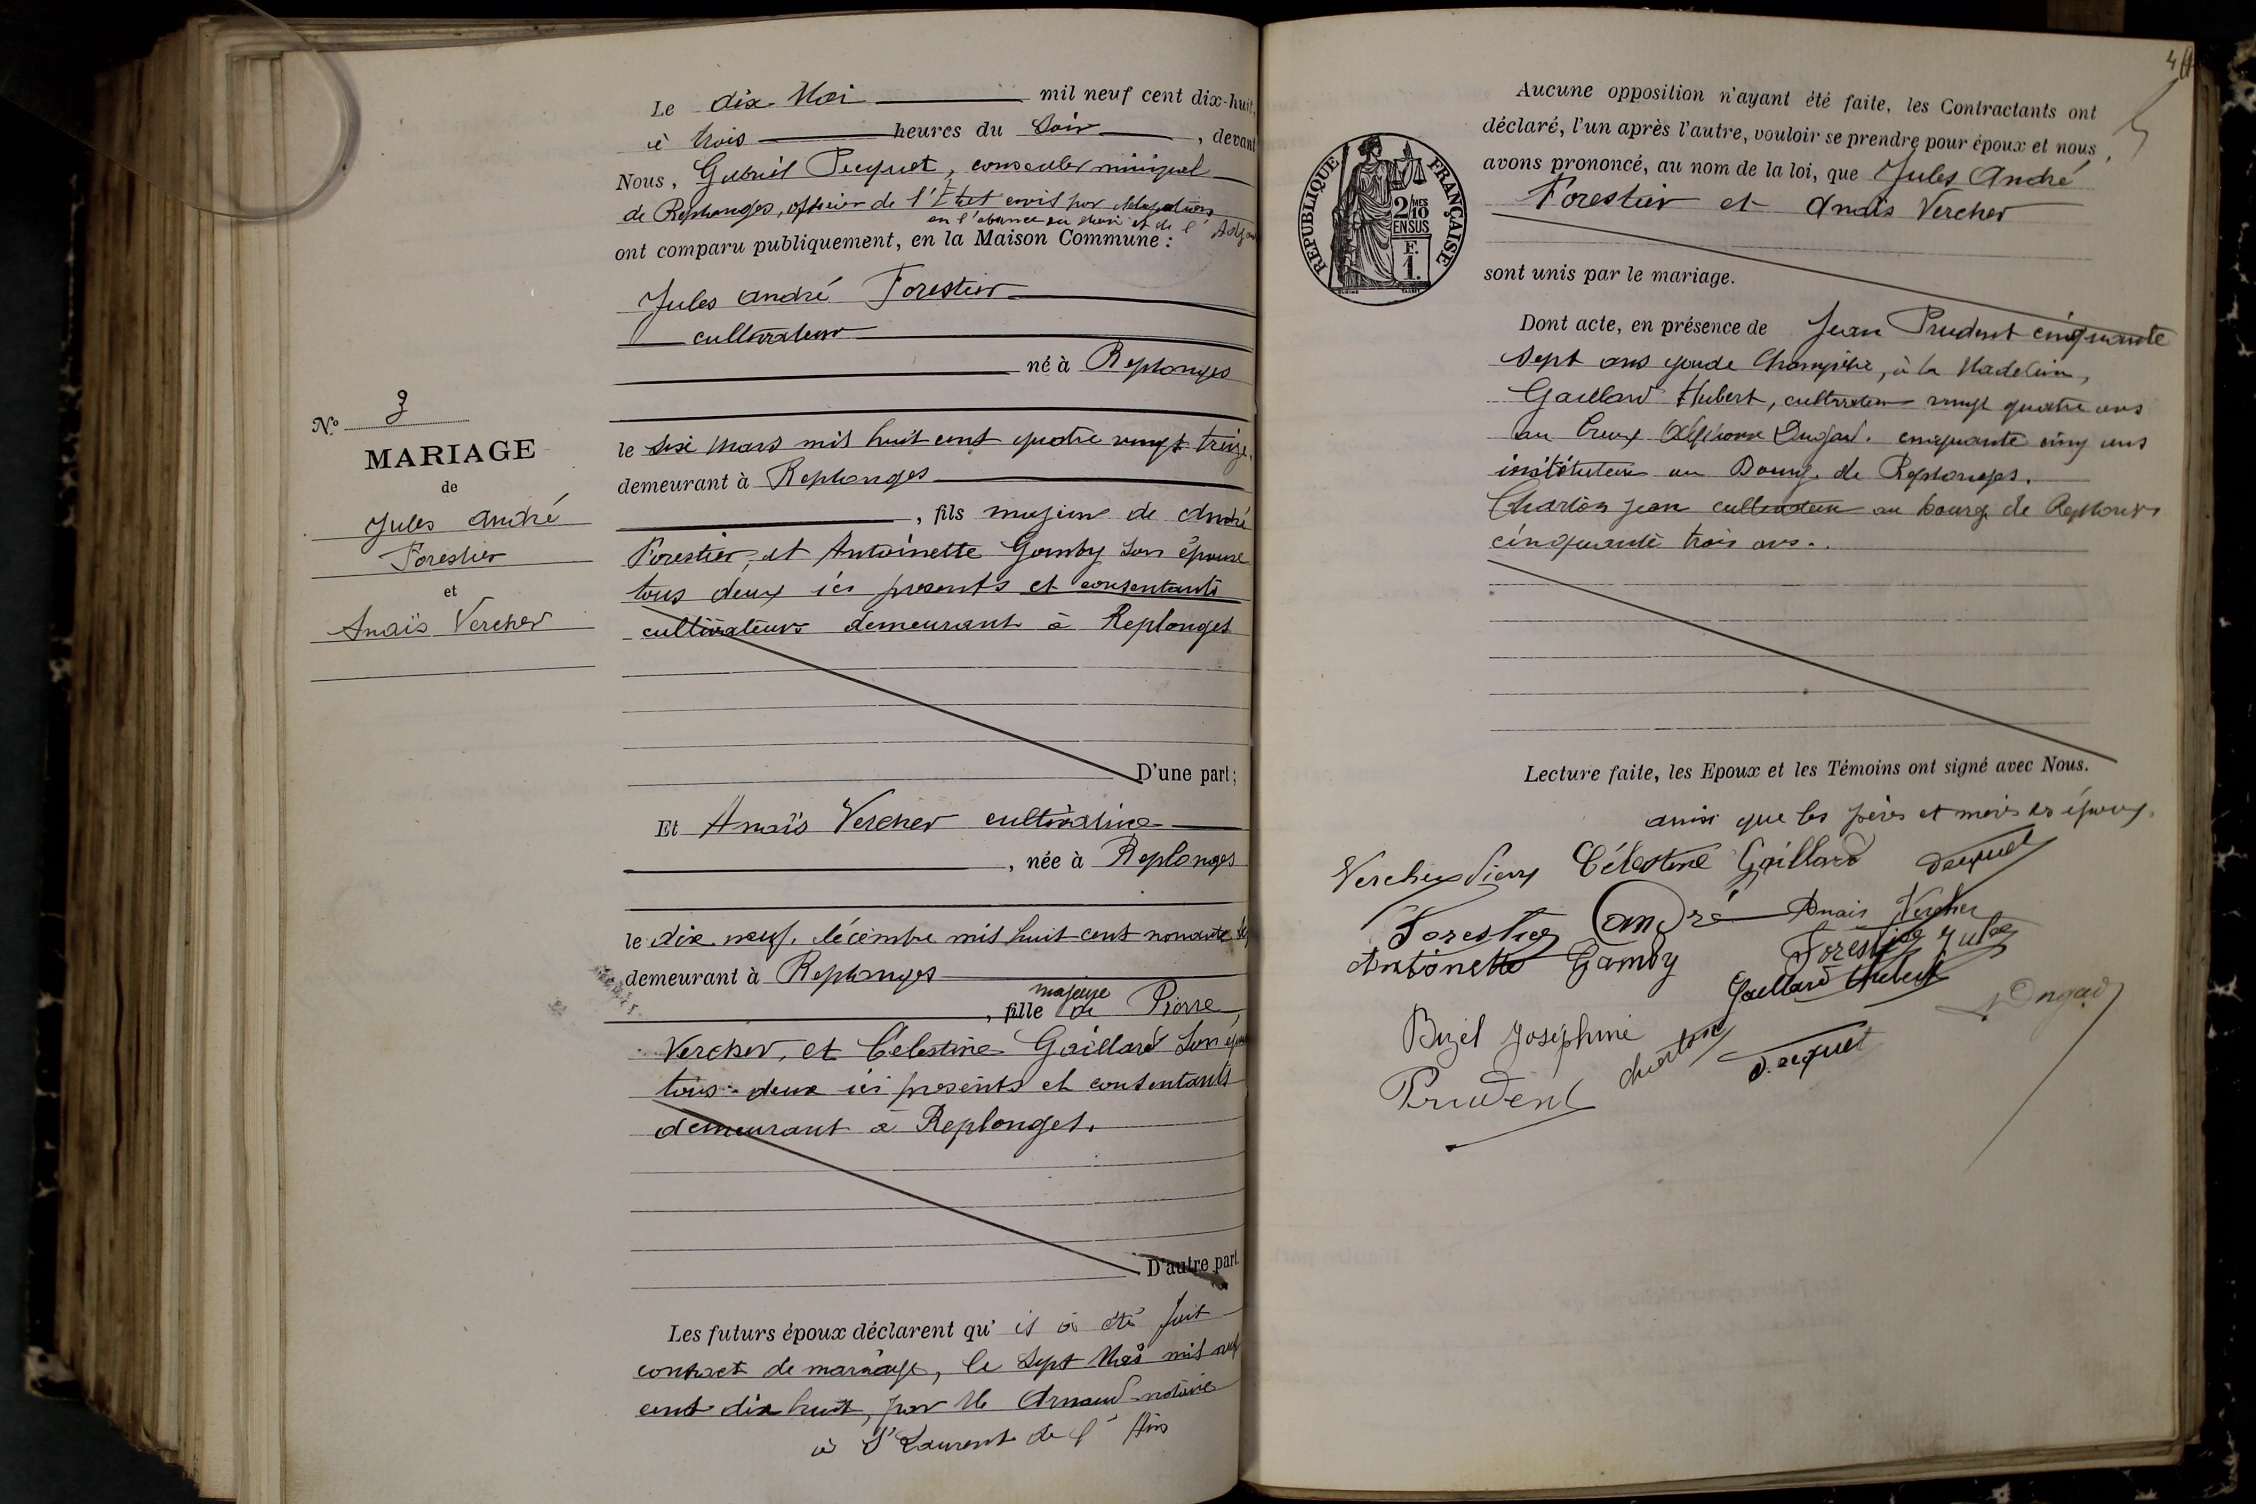 Le dix Mai mil neuf cent dix-huit,
à trois heures du soir, devant
Nous, Gabriel Pecquet, conseiller municipal
de Replonges, officier de l'État civil par délégation
en l'absence du Maire et de l'Adjoint
ont comparu publiquement, en la Maison Commune :
Jules André Forestier
cultivateur
né à Replonges
le six Mars mil huit cent quatre vingt treize,
demeurant à Replonges
, fils majeur de André
Forestier, et Antoinette Gamby son épouse
tous deux ici présents et consentants
cultivateurs demeurant à Replonges
D'une part ;
Et Anaïs Vercher cultivatrice
, née à Replonges
le dix neuf décembre mil huit cent nonante
demeurant à Replonges
majeure
, fille de Pierre,
Vercher, et Célestine Gaillard son
tous deux ici présents et consentants
demeurant à Replonges.
D'autre part
Les futurs époux déclarent qu' il a été fait
contract de mariage, le sept Mai mil neuf
cent dix huit, par Me Arnaud notaire
à St Laurent de l'Ain
N.º 3
MARIAGE
de
Jules André
Forestier
et
Anaïs Vercher
4
Aucune opposition n'ayant été faite, les Contractants ont
déclaré, l'un après l'autre, vouloir se prendre pour époux et nous
avons prononcé, au nom de la loi, que Jules André
Forestier et Anaïs Vercher
sont unis par le mariage.
RÉPUBLIQUE FRANÇAISE
2/MES
10
EN SUS
F.
1.
Dont acte, en présence de Jean Prudent cinquante
sept ans garde Champêtre, à la Madeleine,
Gaillard Hubert, cultivateur vingt quatre ans
au Creux Alphonse Dugad. cinquante cinq ans
instituteur au Bourg de Replonges.
Charton Jean cultivateur au bourg de Replonges
cinquante trois ans.
Lecture faite, les Epoux et les Témoins ont signé avec Nous.
ainsi que les pères et mères des époux.
Vercher Pierre Célestine Gaillard Pecquet
Forestier André Anaïs Vercher
Antoinette Gamby Forestier Jules
Gaillard Hubert Dugad
Bizel Joséphine
Prudent Charton Pecquet